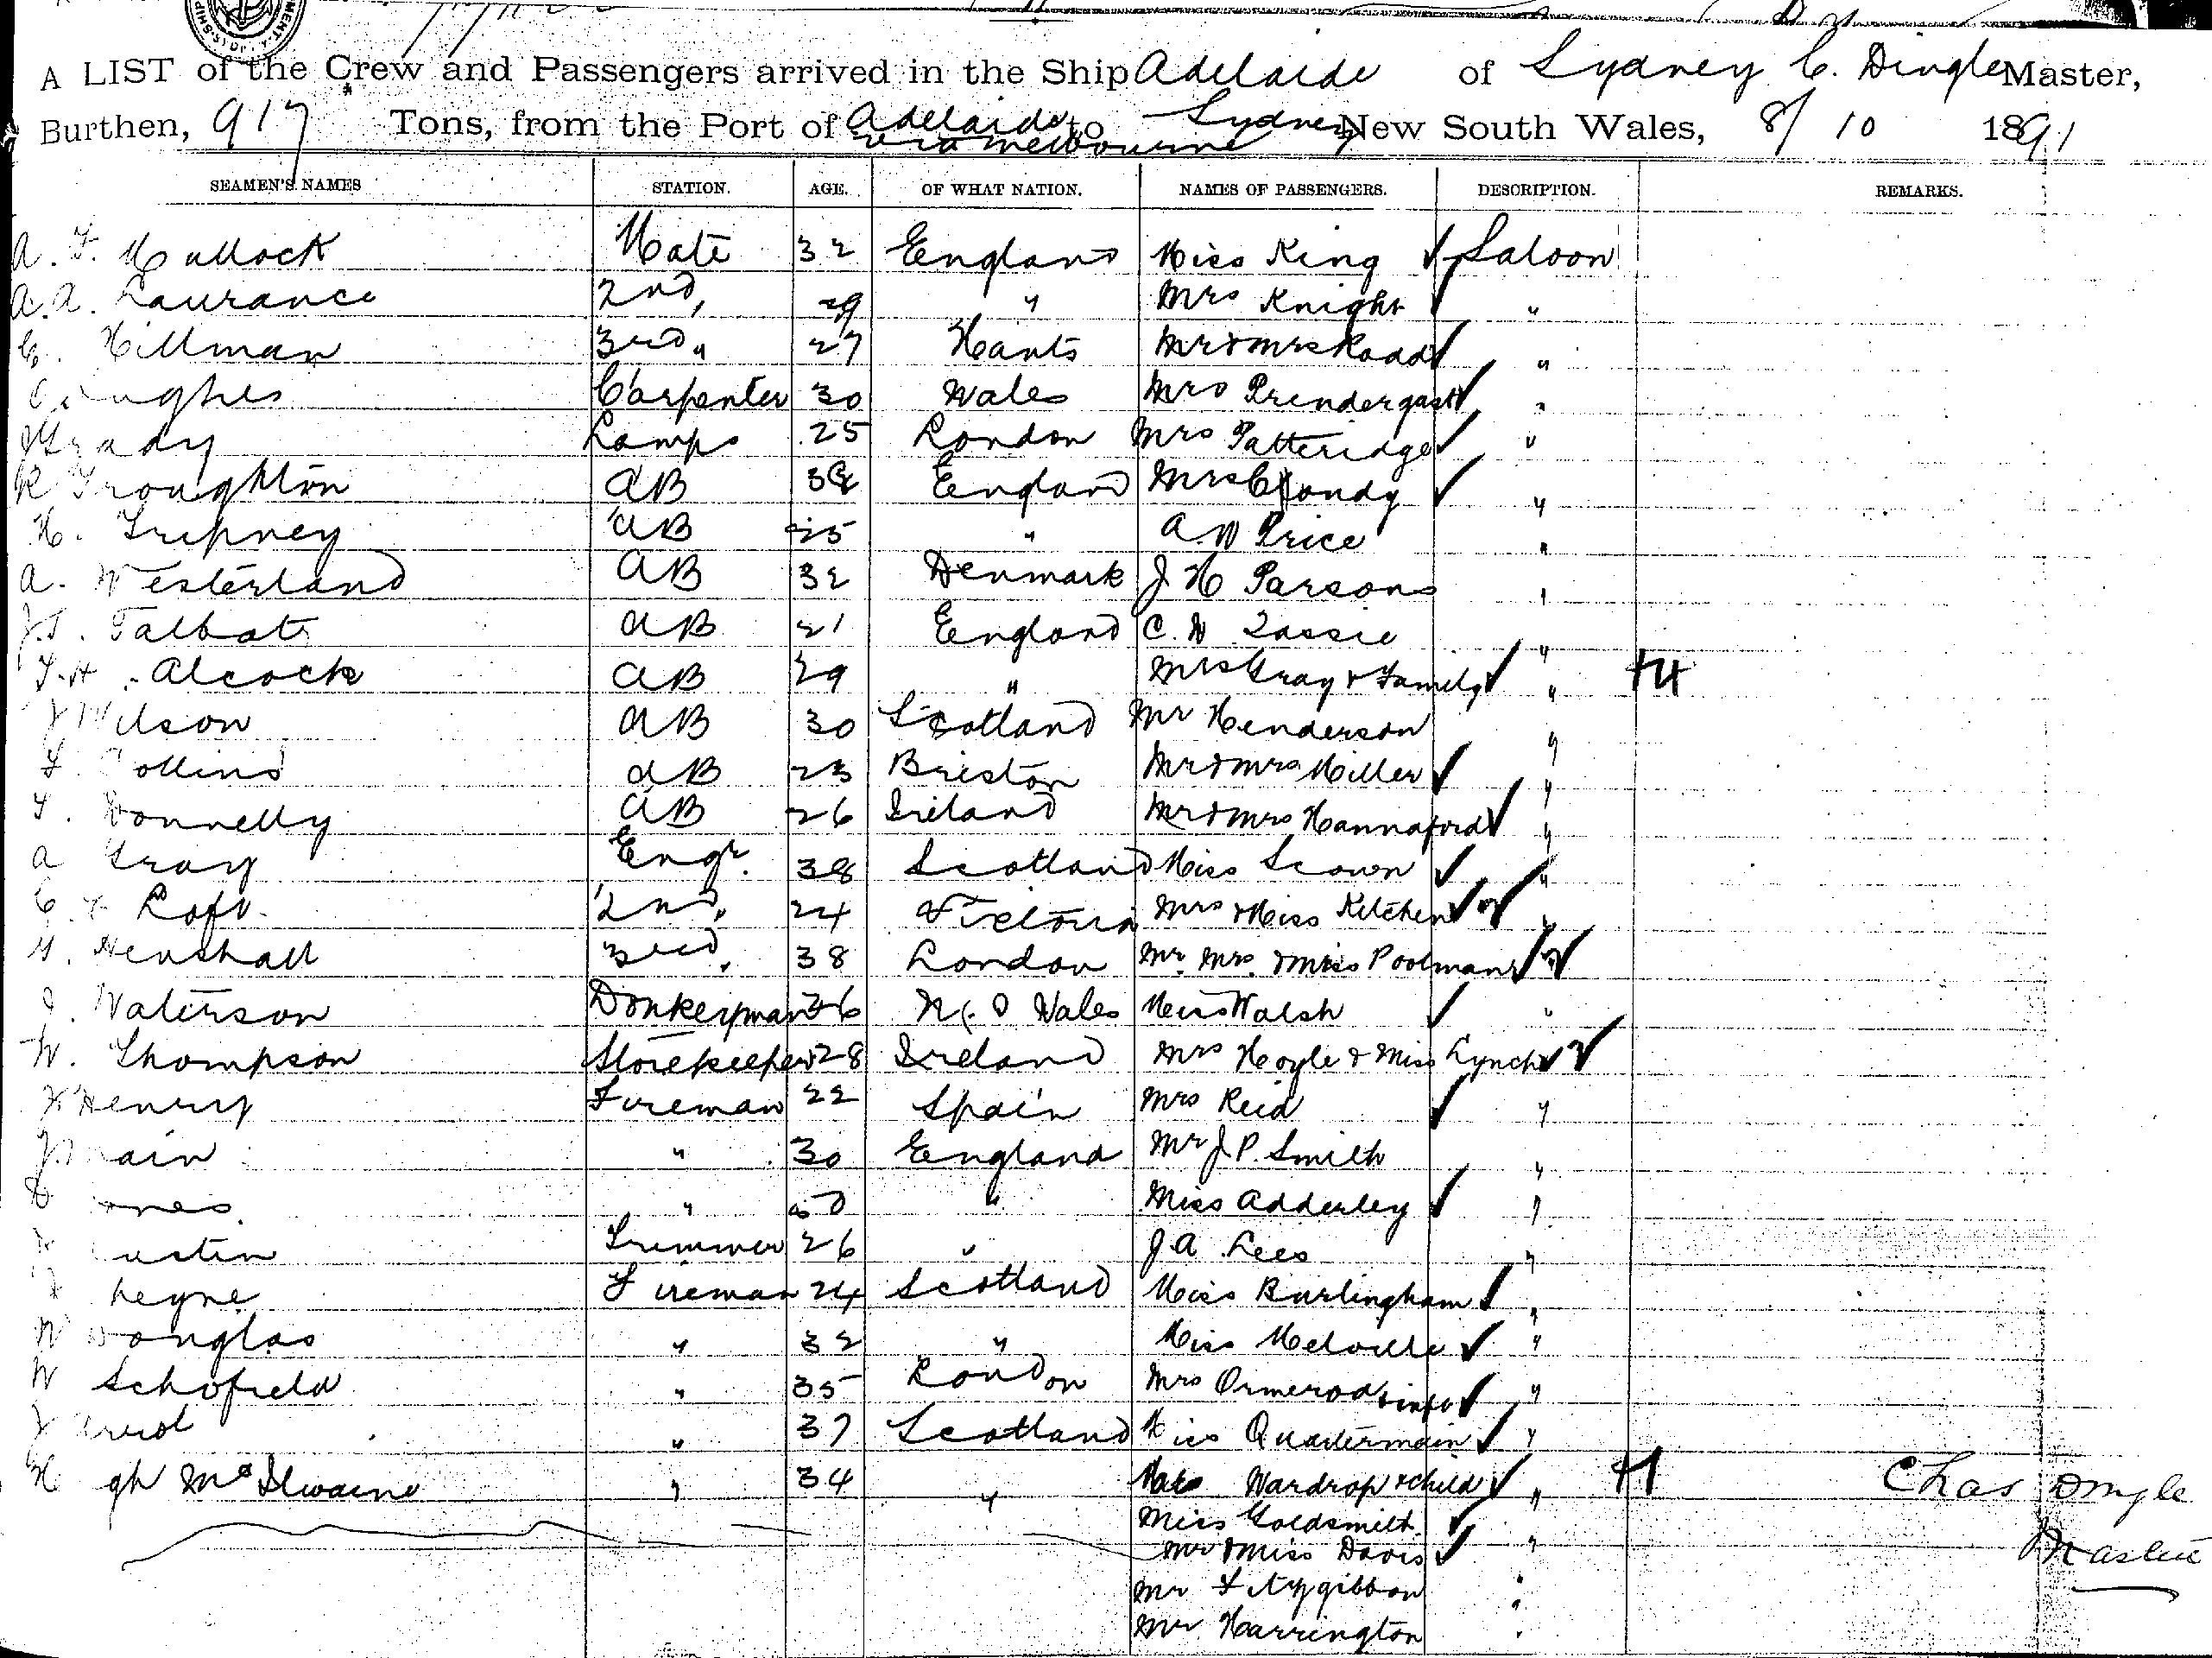 A LIST of the Crew and Passengers arrived in the Ship Adelaide of Sydney C. Dingle Master,
Burthen, 917 Tons, from the Port of Adelaide to Sydney New South Wales, 8/10 1891
via Melbourne
SEAMEN'S NAMES STATION. AGE. OF WHAT NATION. NAMES OF PASSENGERS. DESCRIPTION. REMARKS.
A. F. Mullock Mate 32 England Miss King Saloon
A. A. Laurance 2nd " 29 " Mrs Knight "
Hillman 3rd " 27 Hants Mr & Mrs Rodd "
Hughes Carpenter 30 Wales Mrs Prendergast "
Grady Lamps 25 London Mrs Patteridge "
R Troughton AB England Mrs "
H. Tripney AB 25 " A. W Price "
A. Westerland AB 32 Denmark J H Parsons "
J. T. Talbot AB 21 England C. W "
T. H. Alcock AB 29 " Mrs Gray & Family " +4
J Wilson AB 30 Scotland Mr Henderson "
Collins AB 23 Bristol Mr & Mrs Miller "
Donnelly AB 26 Ireland Mr & Mrs Hannaford "
A Gray Engr. 38 Scotland Miss Scown "
2nd " 24 Victoria Mrs & Miss Kitchen "
Henshall 3rd " 38 London Mr. Mrs. & Miss Poolman "
Waterson Donkeyman 26 N. S Wales Miss Walsh "
W. Thompson Storekeeper 28 Ireland Mrs Hoyle & Miss Lynch
Henry Fireman 22 Spain Mrs Reid "
J. " 30 England Mr J. P. Smith "
" " Miss Adderley "
Trimmer 26 " J. A. Lees "
Fireman 24 Scotland Miss Burlingham "
W Douglas " 32 " Miss Melville "
W Schofield " 35 London Mrs Ormerod & inft "
" 37 Scotland Miss Quartermain "
Hugh McIlwaine " 34 " Wardrop & child " +1 Chas Dingle
Miss Goldsmith Master
Mr & Miss Davis "
Mr Fitzgibbon "
Mr Harrington "